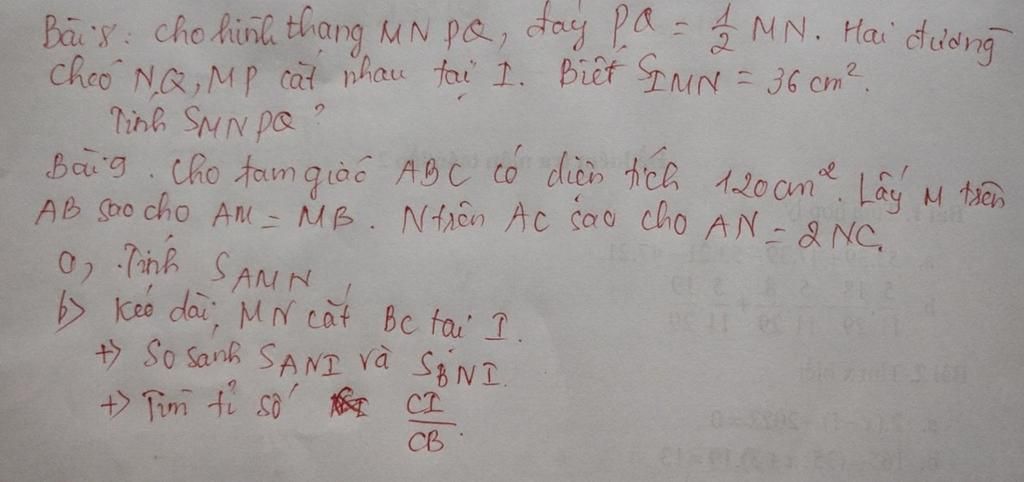 Bài 8: Cho hình thang MNPQ, đáy PQ = 1/2 MN. Hai đường
chéo NQ, MP cắt nhau tại I. Biết S_IMN = 36 cm².
Tính S_MNPQ?
Bài 9. Cho tam giác ABC có diện tích 120cm². Lấy M trên
AB sao cho AM = MB. N trên AC sao cho AN = 2NC.
a, Tính S_AMN
b) Kéo dài, MN cắt BC tại I.
+) So sánh S_ANI và S_BNI.
+) Tìm tỉ số CI/CB.